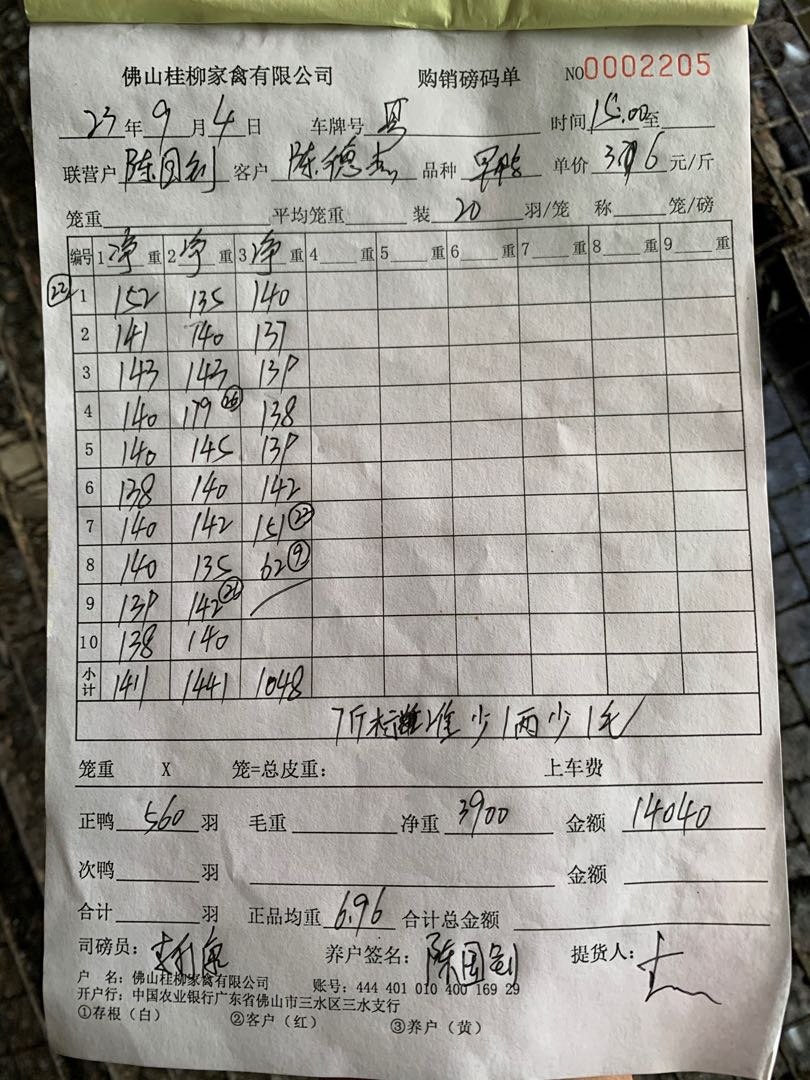 佛山桂柳家禽有限公司 购销磅码单 NO0002205
23年9月4日 车牌号 时间15:00至
联营户 陈国钊 客户 陈德杰 品种 单价 3.6 元/斤
笼重 平均笼重 装 20 羽/笼 称 笼/磅
编号 1 净 重 2 净 重 3 净 重 4 重 5 重 6 重 7 重 8 重 9 重
㉒ 1 152 135 140
2 141 140 137
3 143 143 139
4 140 179 138
5 140 145 139
6 138 140 142
7 140 142 151 ㉒
8 140 135 62 ⑨
9 139 142 ㉑
10 138 140
小计 1411 1441 1048
7斤标准 少1两少1毛
笼重 X 笼=总皮重: 上车费
正鸭 560 羽 毛重 净重 3900 金额 14040
次鸭 羽 金额
合计 羽 正品均重 6.96 合计总金额
司磅员: 养户签名: 陈国钊 提货人:
户 名: 佛山桂柳家禽有限公司 账号: 444 401 010 400 169 29
开户行: 中国农业银行广东省佛山市三水区三水支行
①存根(白) ②客户(红) ③养户(黄)